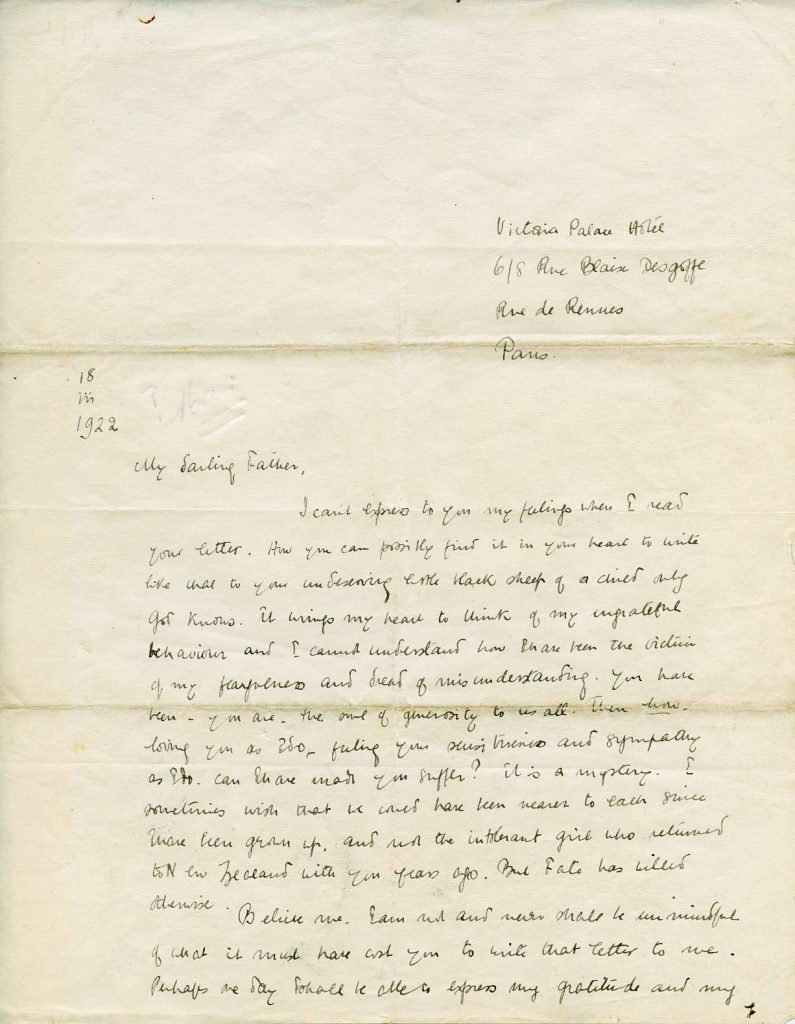 Victoria Palace Hôtel
6/8 Rue Blaise Desgoffe
Rue de Rennes
Paris.
18
iii
1922
My darling Father,
I can't express to you my feelings when I read
your letter. How you can possibly find it in your heart to write
like that to your undeserving little black sheep of a child only
God knows. It wrings my heart to think of my ungrateful
behaviour and I cannot understand how I have been the victim
of my fearfulness and dread of misunderstanding. You have
been - you are - the soul of generosity to us all. Then how -
loving you as I do - feeling your sensitiveness and sympathy
as I do - can I have made you suffer? It is a mystery. I
sometimes wish that we could have been nearer to each since
I have been grown up, and not the intolerant girl who returned
to New Zealand with you years ago. But Fate has willed
otherwise.
Believe me. I am not and never shall be unmindful
of what it must have cost you to write that letter to me.
Perhaps one day I shall be able to express my gratitude and my